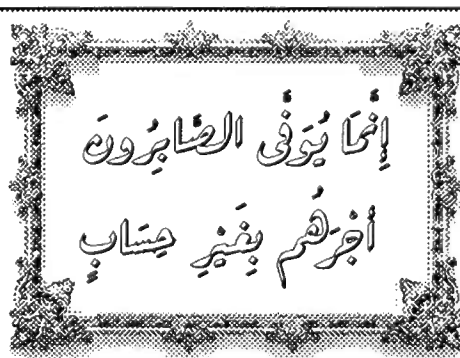 إِنَّمَا يُوَفَّى الصَّابِرُونَ
أَجْرَهُم بِغَيْرِ حِسَابٍ